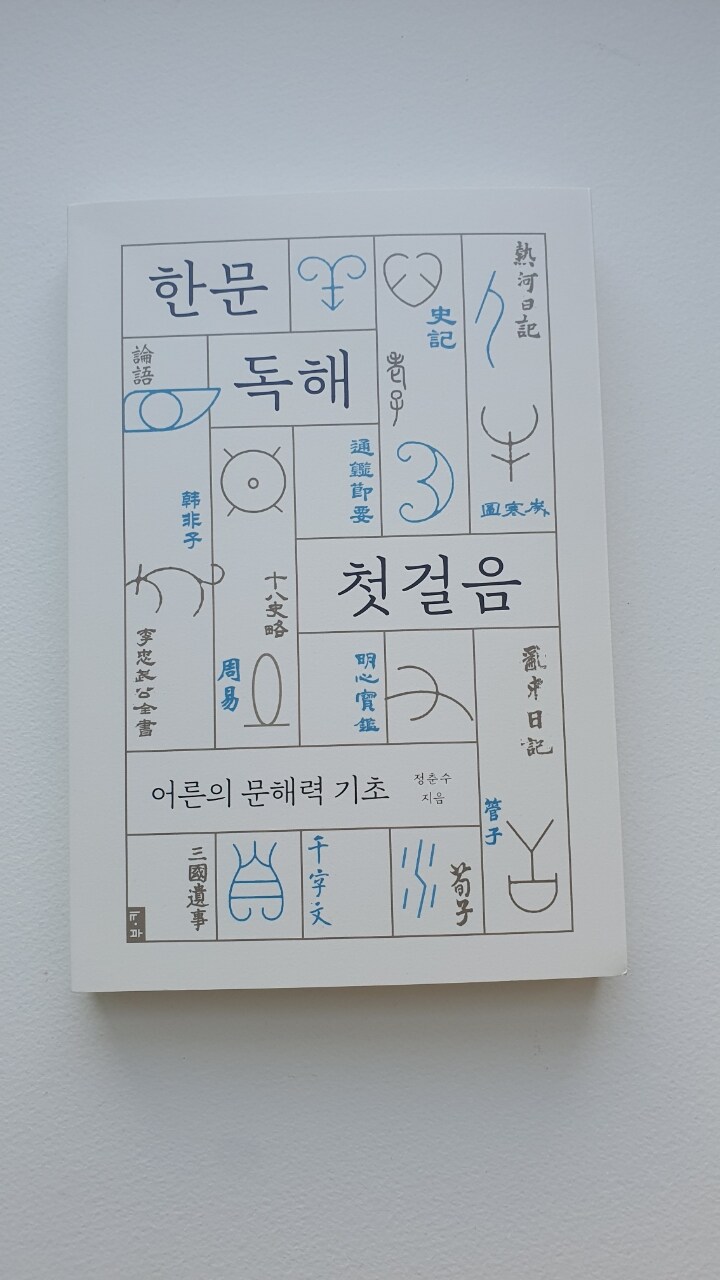 한문
독해
첫걸음
어른의 문해력 기초
정춘수
지음
熱河日記
史記
論語
老子
通鑑節要
歲寒圖
韩非子
十八史略
李忠武公全書
周易
明心寶鑑
亂中日記
管子
三國遺事
千字文
荀子